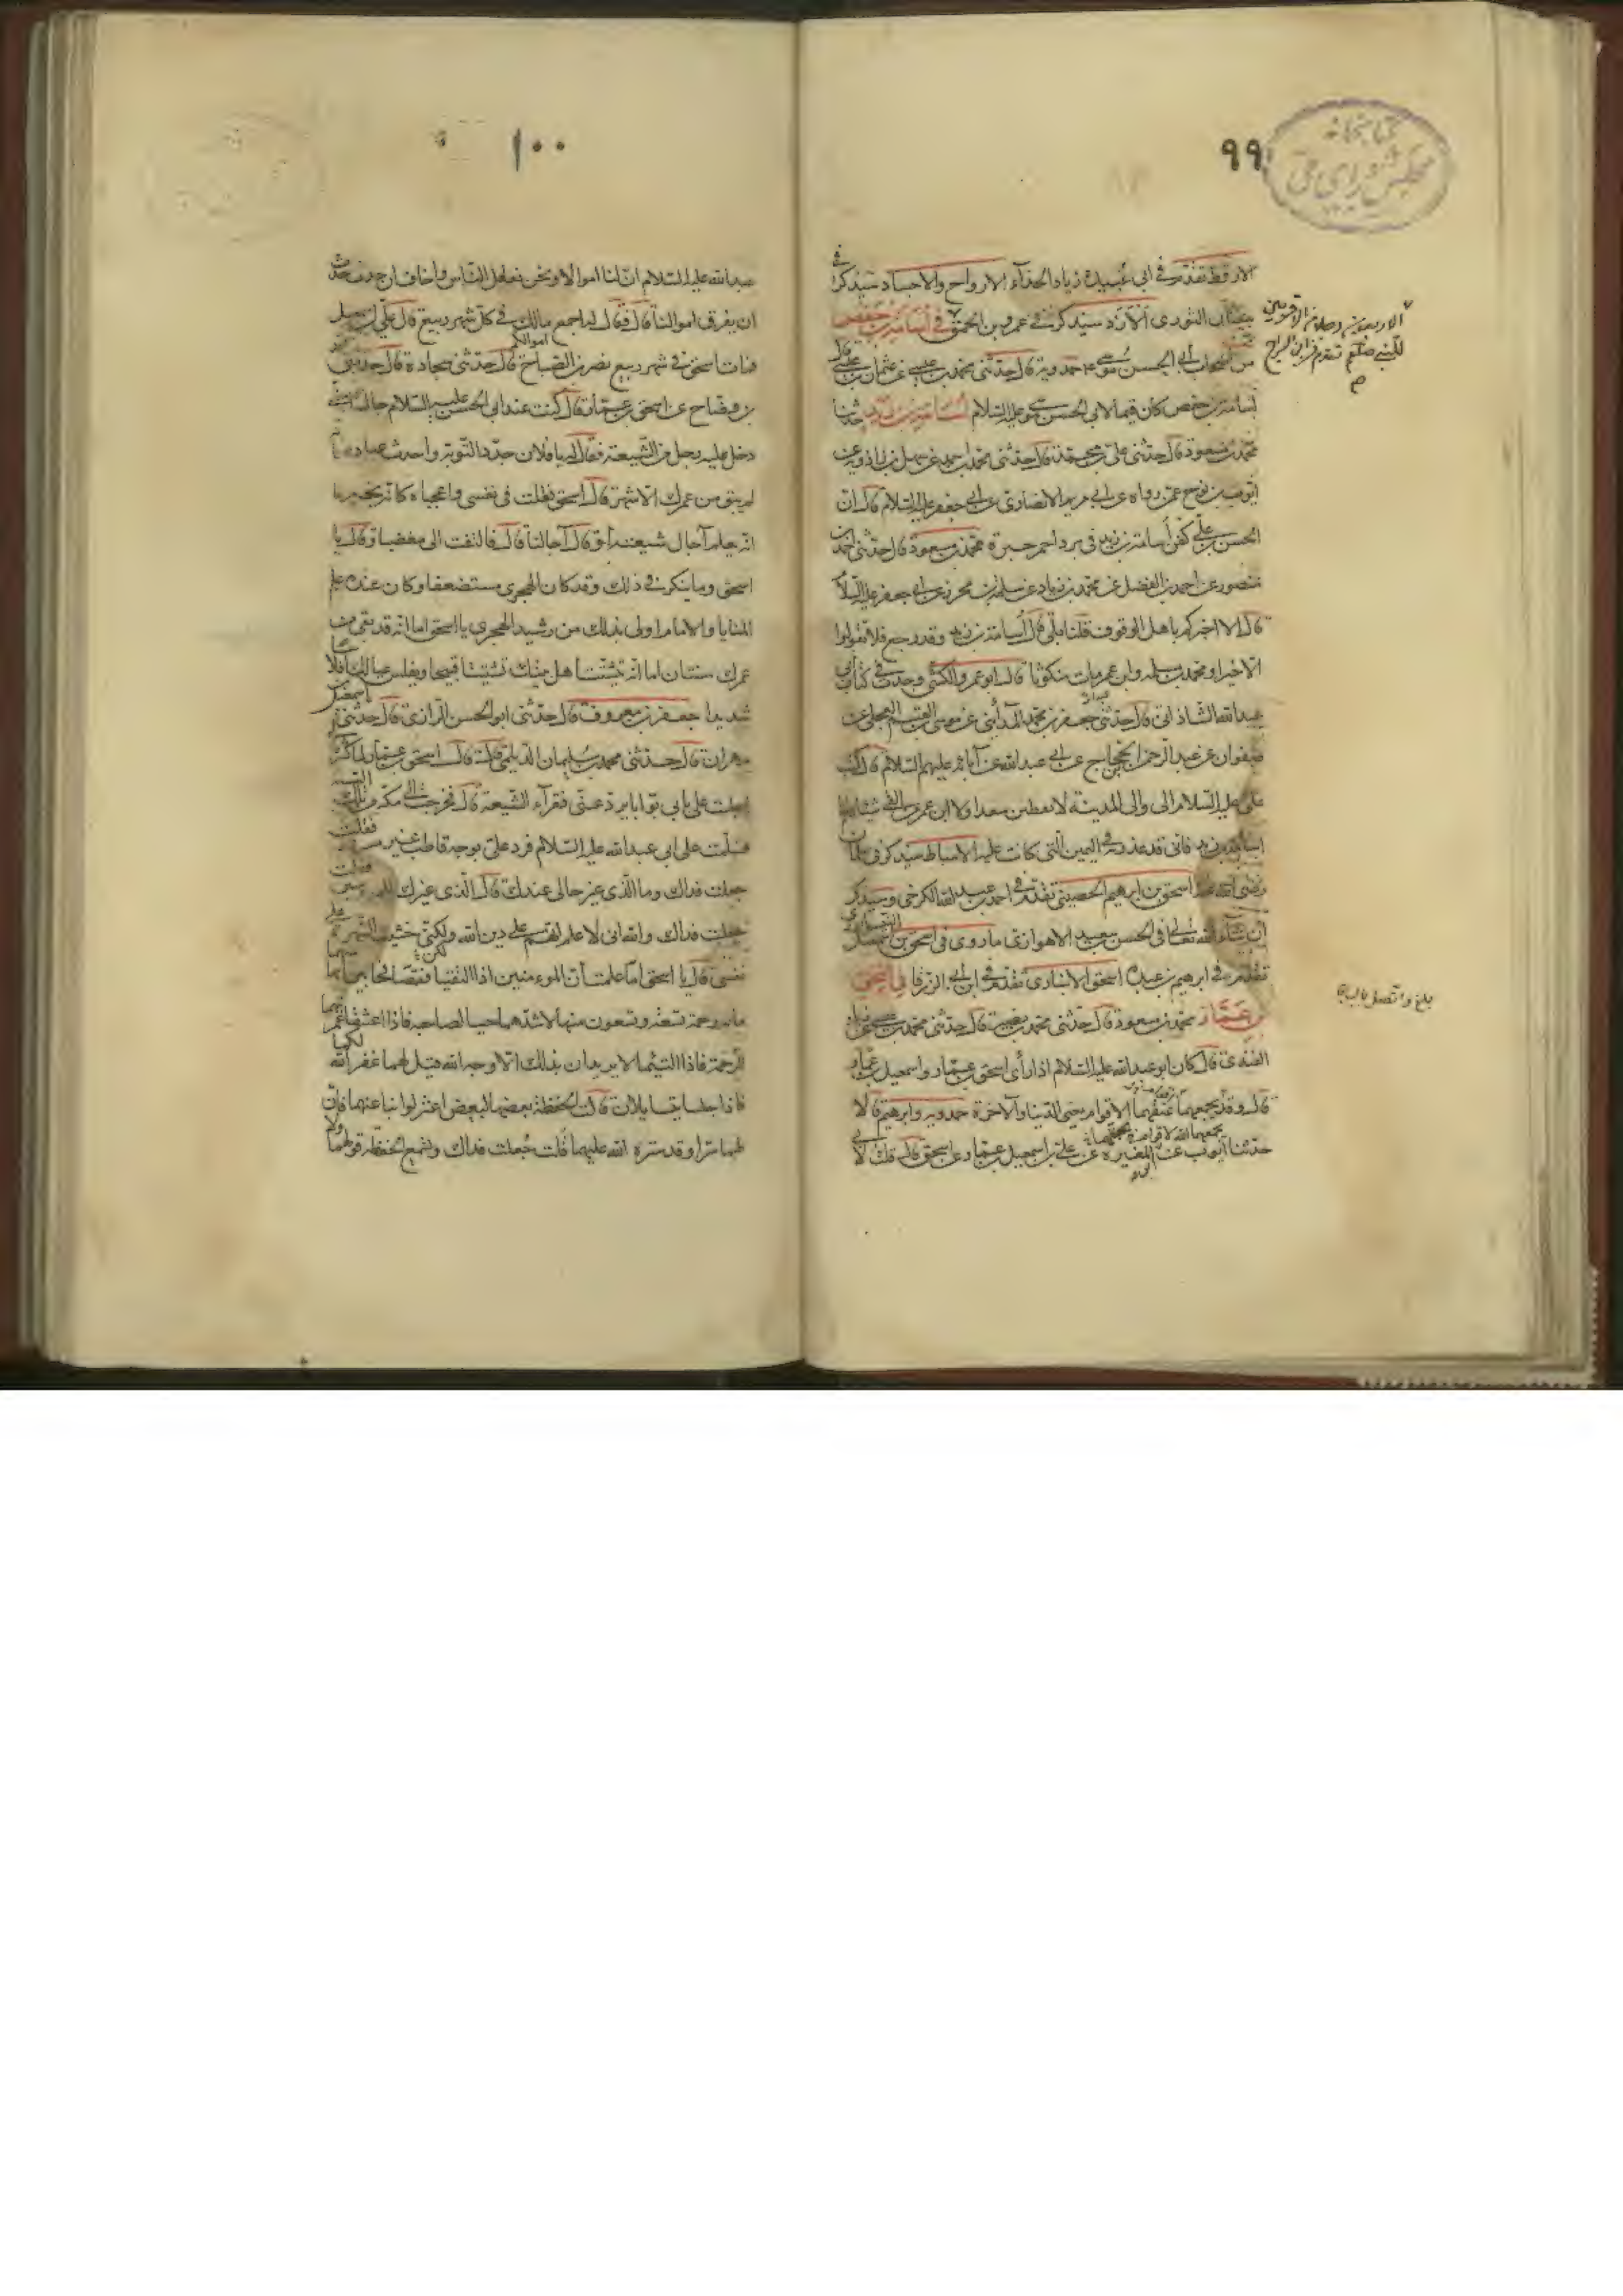 ٩٩
كتابخانه
مجلس شورای ملی
الارقط تقدم في ابي عبيدة زياد الحذاء الارواح والاجساد سيذكر في
سفيان الثوري الازد سيذكر في عمرو بن الحمق في اسامة بن حفص
من اصحاب ابي الحسن موسى ع حمدويه قال حدثني محمد بن عيسى عن عثمان بن عيسى قال
اسامة بن حفص كان قيما لابي الحسن موسى عليه السلام اسامة بن زيد حدثنا
محمد بن مسعود قال حدثني علي بن محمد قال حدثني محمد بن احمد عن سهل بن زاذويه عن
ايوب بن نوح عمن رواه عن ابي مريم الانصاري عن ابي جعفر عليه السلام قال ان
الحسن بن علي كفن اسامة بن زيد في برد احمر حبرة محمد بن مسعود قال حدثني احمد بن
منصور عن احمد بن الفضل عن محمد بن زياد عن سلمة بن محرز عن ابي جعفر عليه السلام
قال الا اخبركم باهل الوقوف قلنا بلى قال اسامة بن زيد وقد رجع فلا تقولوا
الا خيرا ومحمد بن مسلمه وابن عمر مات منكوبا قال ابو عمرو الكشي وجدت في كتاب ابي
عبد الله الشاذاني قال حدثني جعفر بن محمد المدائني عن موسى بن القسم العجلي عن
صفوان عن عبد الرحمن بن الحجاج عن ابي عبد الله عن آبائه عليهم السلام قال كتب
علي عليه السلام الى والي المدينة لا تعطين سعدا ولا ابن عمر من الفيء شيئا فاما
اسامة بن زيد فاني قد عذرته في اليمين التي كانت عليه الاسباط سيذكر في سلمان
رضي الله عنه اسحق بن ابرهيم الحضيني تقدم في احمد بن عبيد الله الكرخي وسيذكر
ان شاء الله تعالى في الحسن بن سعيد الاهوازي ما روي في اسحق بن اسمعيل النيسابوري
تقدم في ابرهيم بن عبده اسحق الانباري تقدم في ابن ابي الزرقا في اسحق
بن عمار محمد بن مسعود قال حدثني محمد بن نصير قال حدثني محمد بن عيسى عن زياد
القندي قال كان ابو عبد الله عليه السلام اذا رأى اسحق بن عمار واسمعيل بن عمار
قال وقد يجمعهما الاقوام يعني الدنيا والآخرة حمدويه وابرهيم قالا
حدثنا ايوب عن ابن المغيرة عن علي بن اسمعيل بن عمار عن اسحق قال قلت لابي
بلغ
١٠٠
عبد الله عليه السلام ان لنا اموالا ونحن نعامل الناس واخاف ان حدث حدث
ان يفرق اموالنا قال فقال له اجمع مالك في كل شهر ربيع قال علي بن اسمعيل
فمات اسحق في شهر ربيع نصر بن الصباح قال حدثني سجادة قال حدثني محمد
بن وضاح عن اسحق بن عمار قال كنت عند ابي الحسن عليه السلام جالسا حتى
دخل عليه رجل من الشيعة فقال له يا فلان جدد التوبة واحدث عبادة فانه
لم يبق من عمرك الا شهر قال اسحق فقلت في نفسي واعجباه كانه يخبرنا
انه يعلم آجال شيعته او قال آجالنا قال فالتفت الى مغضبا وقال يا
اسحق وما ينكر في ذلك وقد كان الهجري مستضعفا وكان عنده علم
المنايا والامام اولى بذلك من رشيد الهجري يا اسحق اما انه قد بقى من
عمرك سنتان اما انه يتشتت اهل بيتك تشتتا قبيحا ويفلس عيالك افلاسا
شديدا جعفر بن معروف قال حدثني ابو الحسن الرازي قال حدثني اسمعيل بن
مهران قال حدثني محمد بن سليمان الديلمي قال قال اسحق بن عمار لما كثر مالي
اجلست على بابي بوابا يرد عني فقرآء الشيعة قال فخرجت الى مكة من تلك السنة
فسلمت على ابي عبد الله عليه السلام فرد علي بوجه قاطب غير مسرور فقلت
جعلت فداك وما الذي غير حالي عندك قال الذي غيرك للمؤمنين فقلت
جعلت فداك والله اني لاعلم انهم على دين الله ولكني خشيت الشهرة على
نفسي قال يا اسحق اما علمت ان المؤمنين اذا التقيا فتصافحا بين ابهاميهما
مائة رحمة تسعة وتسعون منها لاشدهما حبا لصاحبه فاذا اعتنقا غمرتهما
الرحمة فاذا التثما لا يريدان بذلك الا وجه الله قيل لهما غفر الله لكما
فاذا جلسا يتسايلان قالت الحفظة بعضها لبعض اعتزلوا بنا عنهما فان
لهما سرا وقد ستره الله عليهما قلت جعلت فداك وتسمع الحفظة قولهما ولا